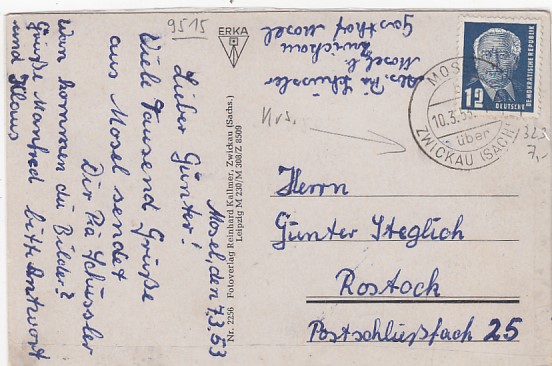 9515
ERKA
Mosel, den 7.3.53
Lieber Günter!
Viele tausend Grüße
aus Mosel sendet
Dir Pia Schüssler
Wann kommen die Bilder?
Grüße Manfred bitte Antwort
und Klaus
Abs. Pia Schüssler
Mosel b.
Zwickau
Gasthof Mosel
Nr. 2256 Fotoverlag Reinhard Kallmer, Zwickau (Sachs.)
Leipzig M 230/M 308/Z 8509
12
DEUTSCHE
DEMOKRATISCHE REPUBLIK
MOSEL
10.3.53
über
ZWICKAU (SACH
Krs.
323
7,-
Herrn
Günter Steglich
Rostock
Postschließfach 25